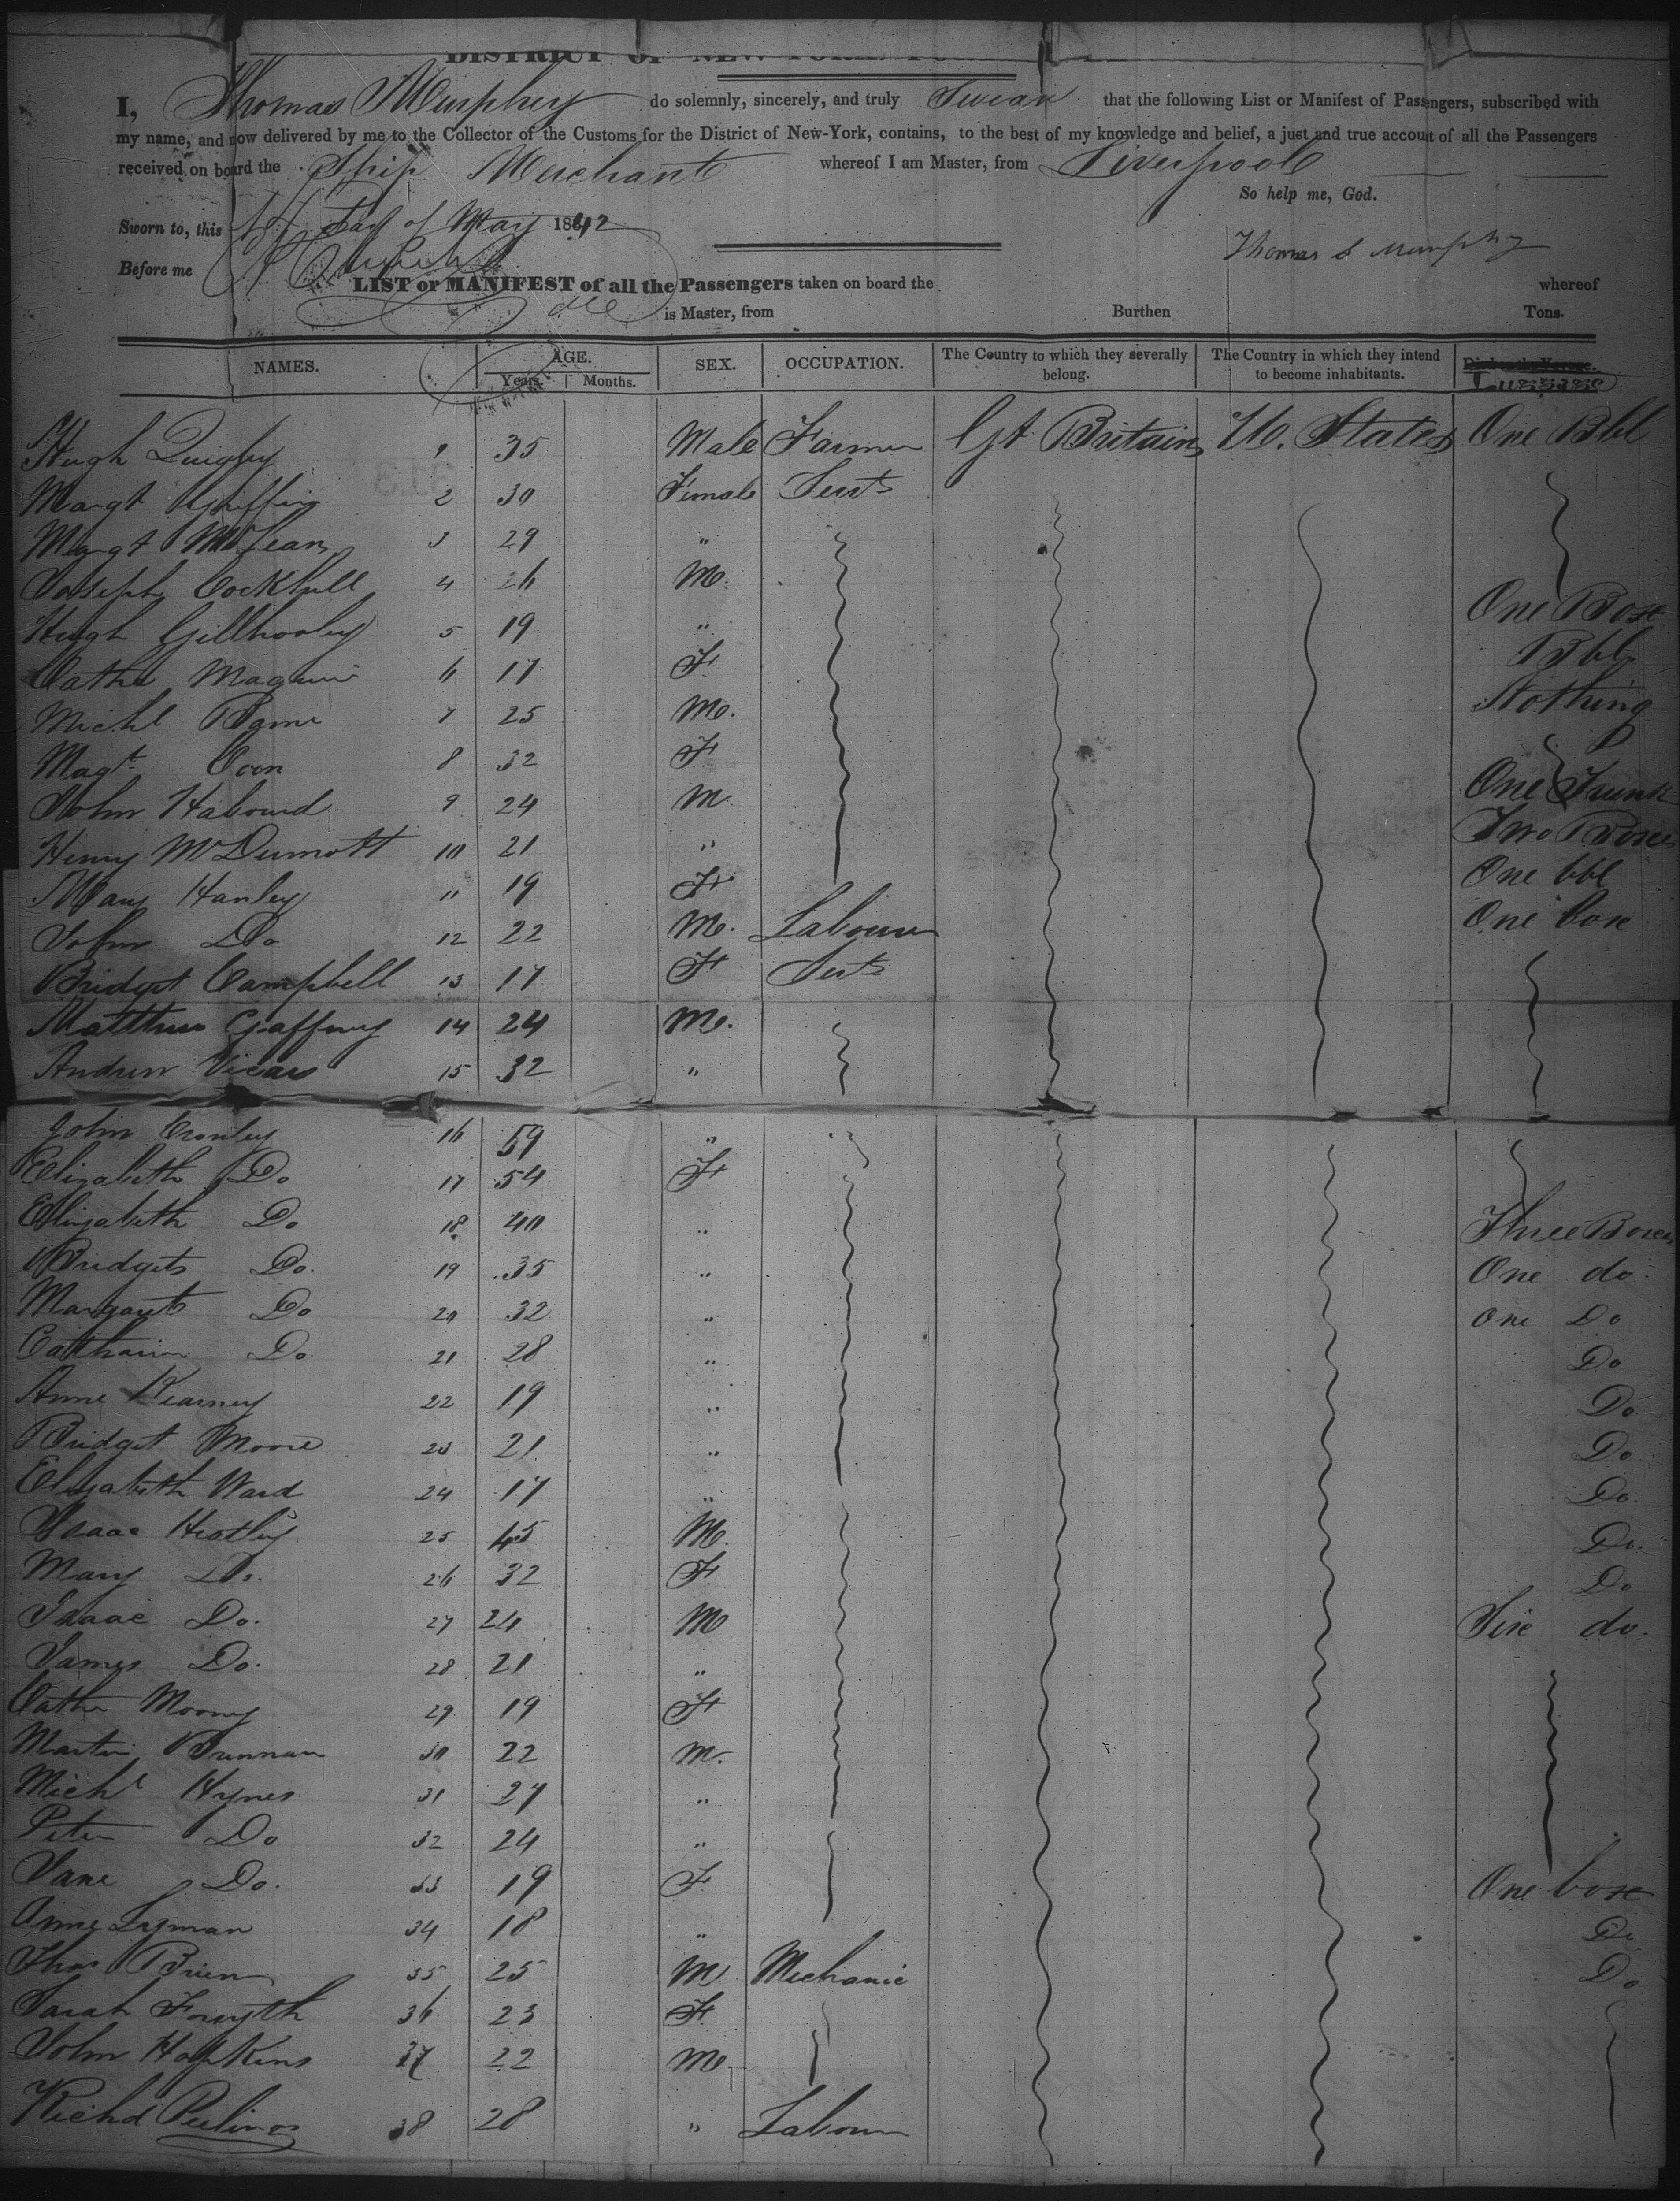 DISTRICT OF NEW YORK
I, Thomas Murphy do solemnly, sincerely, and truly Swear that the following List or Manifest of Passengers, subscribed with
my name, and now delivered by me to the Collector of the Customs for the District of New-York, contains, to the best of my knowledge and belief, a just and true account of all the Passengers
received on board the Ship Merchant whereof I am Master, from Liverpool
So help me, God.
Sworn to, this Day of May 1842
Thomas S Murphy
Before me
LIST or MANIFEST of all the Passengers taken on board the whereof
is Master, from Burthen Tons.
NAMES. AGE. Years. Months. SEX. OCCUPATION. The Country to which they severally belong. The Country in which they intend to become inhabitants.
Hugh Quigby 1 35 Male Farmer Gt Britain U. States One Bbl
Margt Griffin 2 30 Female Servts
Margt 3 29 "
Joseph Cockhill 4 26 M. One Box
Hugh Gillhooley 5 19 " Bbl
Cathe Maguire 6 17 F Nothing
Michl 7 25 M.
Magt 8 32 F One Trunk
John Habourd 9 24 M Two Boxes
Henry McDermott 10 21 " One bbl
Mary Hanley 11 19 F One box
John Do 12 22 M. Labourer
Bridget Campbell 13 17 F Servts
Matthew Gaffney 14 24 M.
Andrew Vicars 15 32 "
John Cronley 16 59 "
Elizabeth Do 17 54 F
Elizabeth Do 18 40 " Three Boxes
Bridget Do. 19 35 " One do.
Margaret Do 20 32 " One Do
Catharin Do. 21 28 " Do
Anne Kearney 22 19 " Do
Bridget Moore 23 21 " Do
Elizabeth Ward 24 17 " Do.
Isaac Heatley 25 45 M. Do.
Mary Do. 26 32 F Do
Isaac Do. 27 24 M Six do.
James Do. 28 21 "
Cathe Mooney 29 19 F
Martin Brennan 30 22 M.
Michl Hynes 31 27 "
Peter Do 32 24 "
Jane Do. 33 19 F One box
Anne Lyman 34 18 " Do
Thos Brien 35 25 M Mechanic Do
Sarah Forsyth 36 23 F
John Hopkins 37 22 M.
Richd 38 28 " Labourer